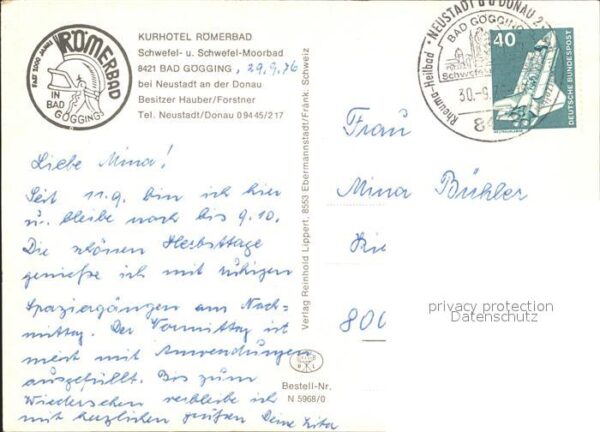 FAST 2000 JAHRE
RÖMERBAD
IN
BAD
GÖGGING
KURHOTEL RÖMERBAD
Schwefel- u. Schwefel-Moorbad
8421 BAD GÖGGING, 29.9.76
bei Neustadt an der Donau
Besitzer Hauber/Forstner
Tel. Neustadt/Donau 09445/217
Liebe Mina!
Seit 11.9. bin ich hier
u. bleibe noch bis 9.10.
Die schönen Herbsttage
genieße ich mit ruhigen
Spaziergängen am Nach-
mittag. Der Vormittag ist
meist mit Anwendungen
ausgefüllt. Bis zum
Wiedersehen verbleibe ich
mit herzlichen Grüßen Deine Zita
Verlag Reinhold Lippert, 8553 Ebermannstadt/Fränk. Schweiz
Bestell-Nr.
N 5968/0
NEUSTADT a d DONAU 2
BAD GÖGGING
Schwefel
Rheuma-Heilbad
30.-9.76
84
40
DEUTSCHE BUNDESPOST
Frau
Mina Bühler
800
privacy protection
Datenschutz